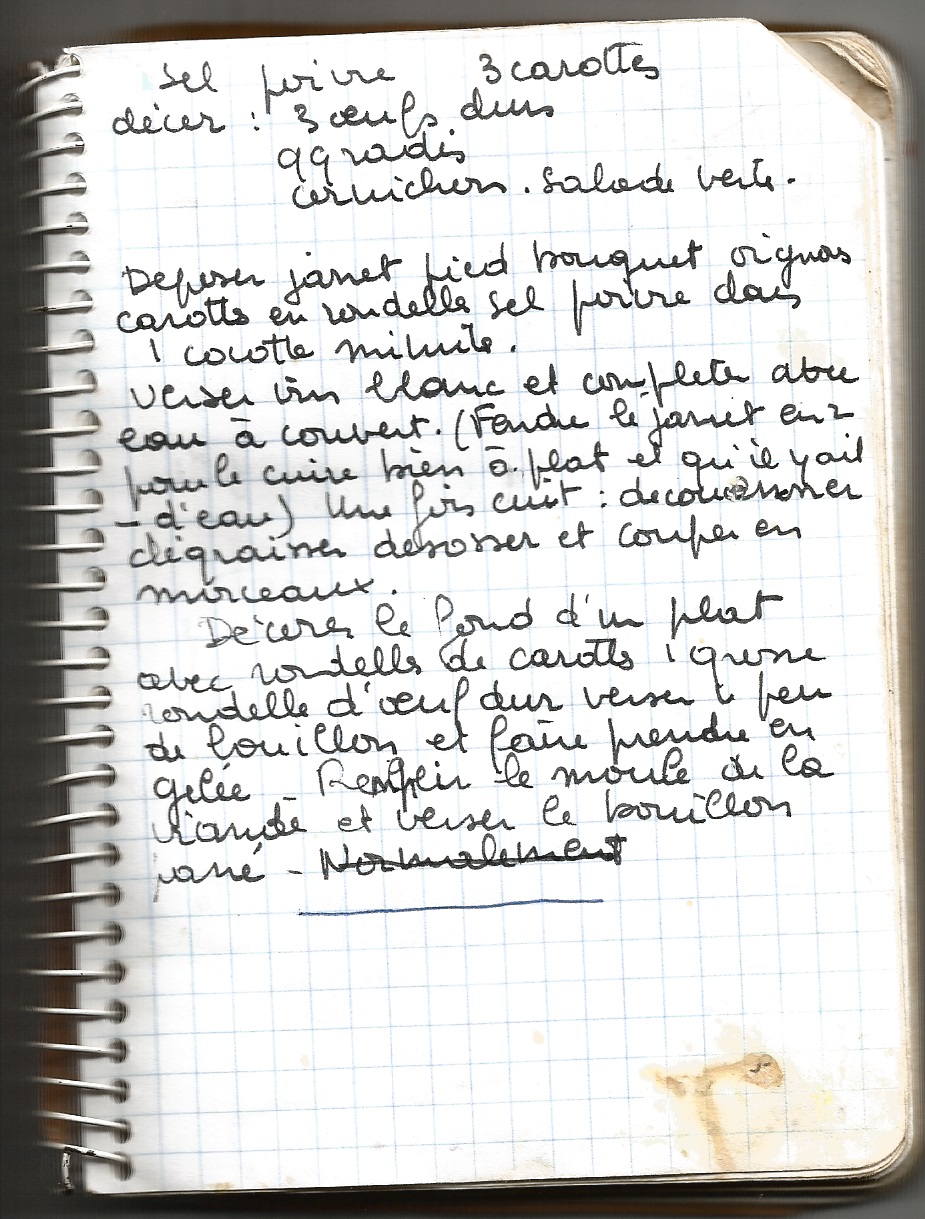 Sel poivre 3 carottes
décor : 3 œufs durs
qq radis
cornichons . Salade verte .
Deposer jarret pied bouquet oignons
carottes en rondelles sel poivre dans
1 cocotte minute .
Verser vin blanc et completer avec
eau à couvert . (Fendre le jarret en 2
pour le cuire bien à plat et qu'il y ait
- d'eau) Une fois cuit : decouenner
dégraisser desosser et couper en
morceaux .
Décorer le fond d'un plat
avec rondelles de carottes 1 grosse
rondelle d'œuf dur verser 1 peu
de bouillon et faire prendre en
gelée Remplir le moule de la
viande et verser le bouillon
passé - Normalement